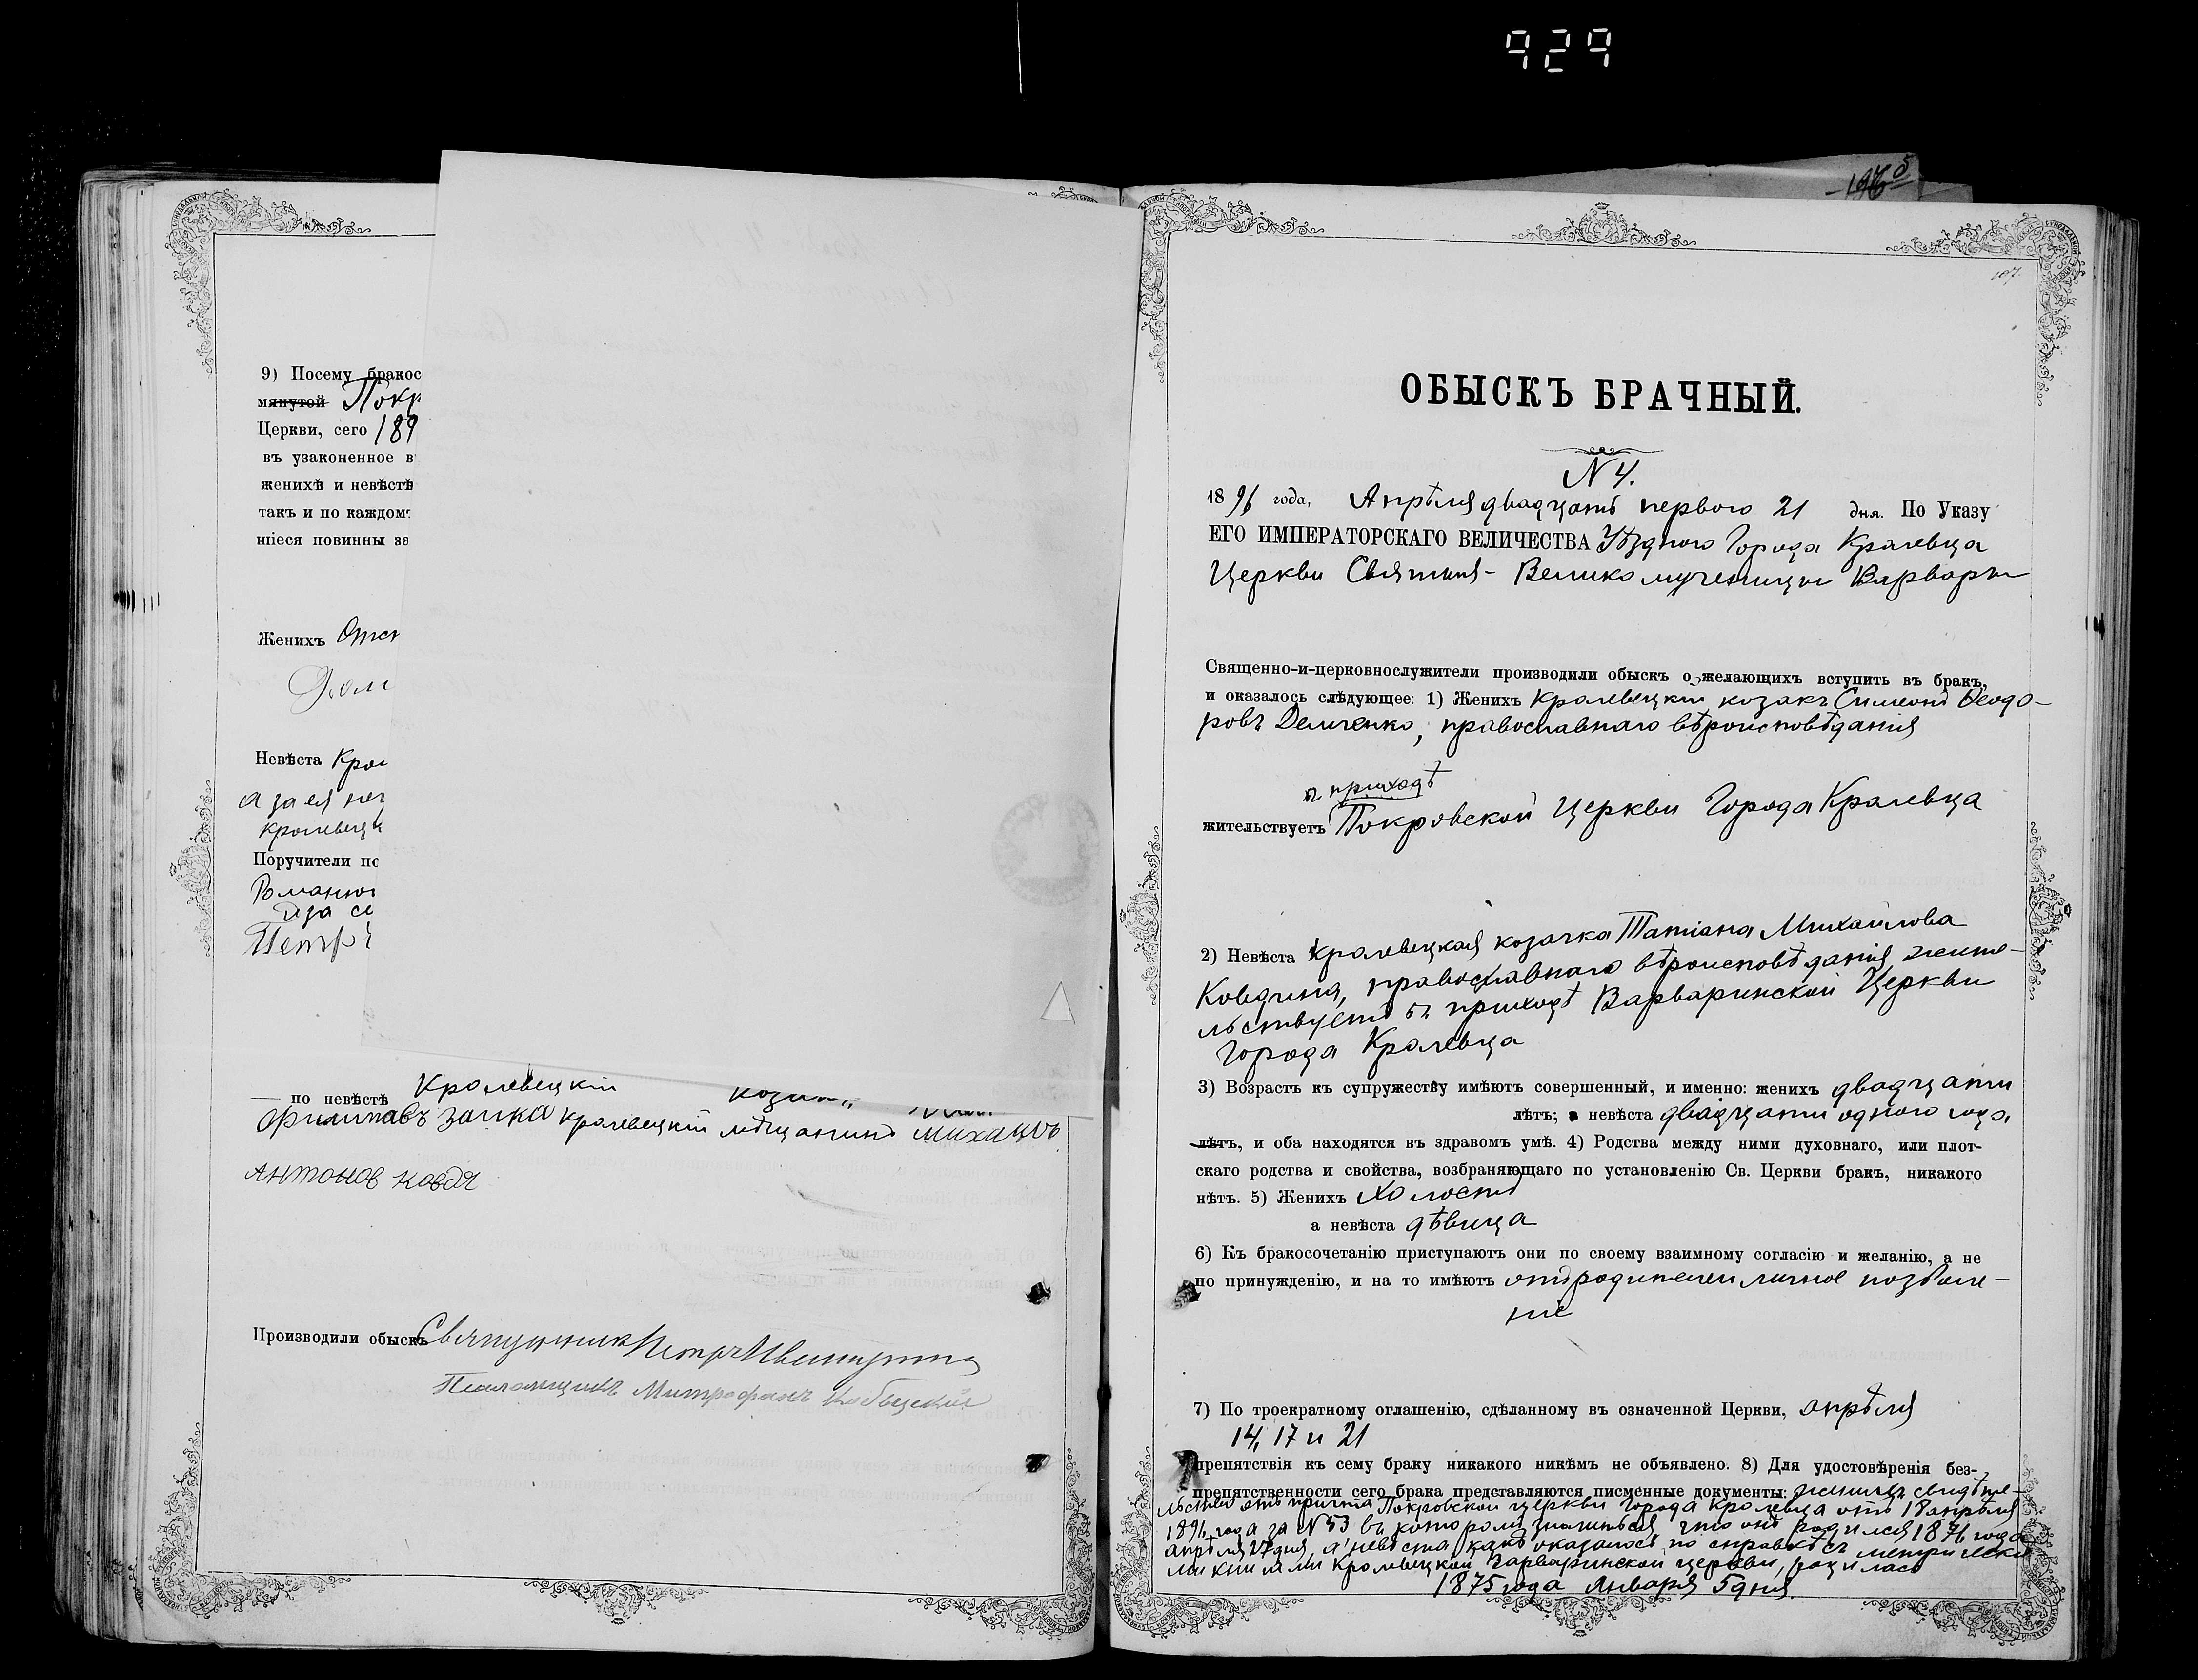 929
107.
9) Посему бракос
мянутой Покр
Церкви, сего 189
въ узаконенное в
женихѣ и невѣстѣ
такъ и по каждом
шіеся повинны за
Женихъ
Невѣста Крол
а за ея
Кролевецк
Поручители по
Романю
Петр
по невѣстѣ Кролевецкій козак
Филиповъ Заика Кролевецкій мѣщанинъ Михаилъ
Антонов Ковдя
Производили обыскъ Священник Петръ
Псаломщикъ Митрофанъ
ОБЫСКЪ БРАЧНЫЙ.
N 4.
1896 года, Апрѣля двадцать первого 21 дня. По Указу
ЕГО ИМПЕРАТОРСКАГО ВЕЛИЧЕСТВА Уѣздного Города Кралевца
Церкви Святыя-Великомученицы Варвары
Священно-и-церковнослужители производили обыскъ о желающихъ вступить въ бракъ,
и оказалось слѣдующее: 1) Женихъ Кралевецкій козакъ Симеонъ Ѳеодо-
ровъ Демченко, православнаго вѣроисповѣданія
въ приходѣ
жительствуетъ Покровской Церкви Города Кралевца
2) Невѣста Кралевецкая козачка Татіана Михайлова
Ковдина, православнаго вѣроисповѣданія, жите-
льствуетъ въ приходѣ Варваринской Церкви
Города Кралевца
3) Возрастъ къ супружеству имѣютъ совершенный, и именно: женихъ двадцати
лѣтъ; а невѣста двадцати одного года,
лѣтъ, и оба находятся въ здравомъ умѣ. 4) Родства между ними духовнаго, или плот-
скаго родства и свойства, возбраняющаго по установленію Св. Церкви бракъ, никакого
нѣтъ. 5) Женихъ холостъ
а невѣста дѣвица
6) Къ бракосочетанію приступаютъ они по своему взаимному согласію и желанію, а не
по принужденію, и на то имѣютъ отъ родителей личное позволе-
ніе
7) По троекратному оглашенію, сдѣланному въ означенной Церкви, апрѣля
14, 17 и 21
препятствія къ сему браку никакого никѣмъ не объявлено. 8) Для удостовѣренія без-
препятственности сего брака представляются писменные документы: женихъ свидѣте-
льство отъ причта Покровской церкви города Кролевца отъ 18 апрѣля
1896 года за N 53 въ котором значиться, что онъ родился 1876 года
апрѣля 27 дня, а невѣста, какъ оказалось по справкѣ съ метрическо-
ми книгами Кролевецкой Варваринской церкви, родилась
1875 года Января 5 дня.